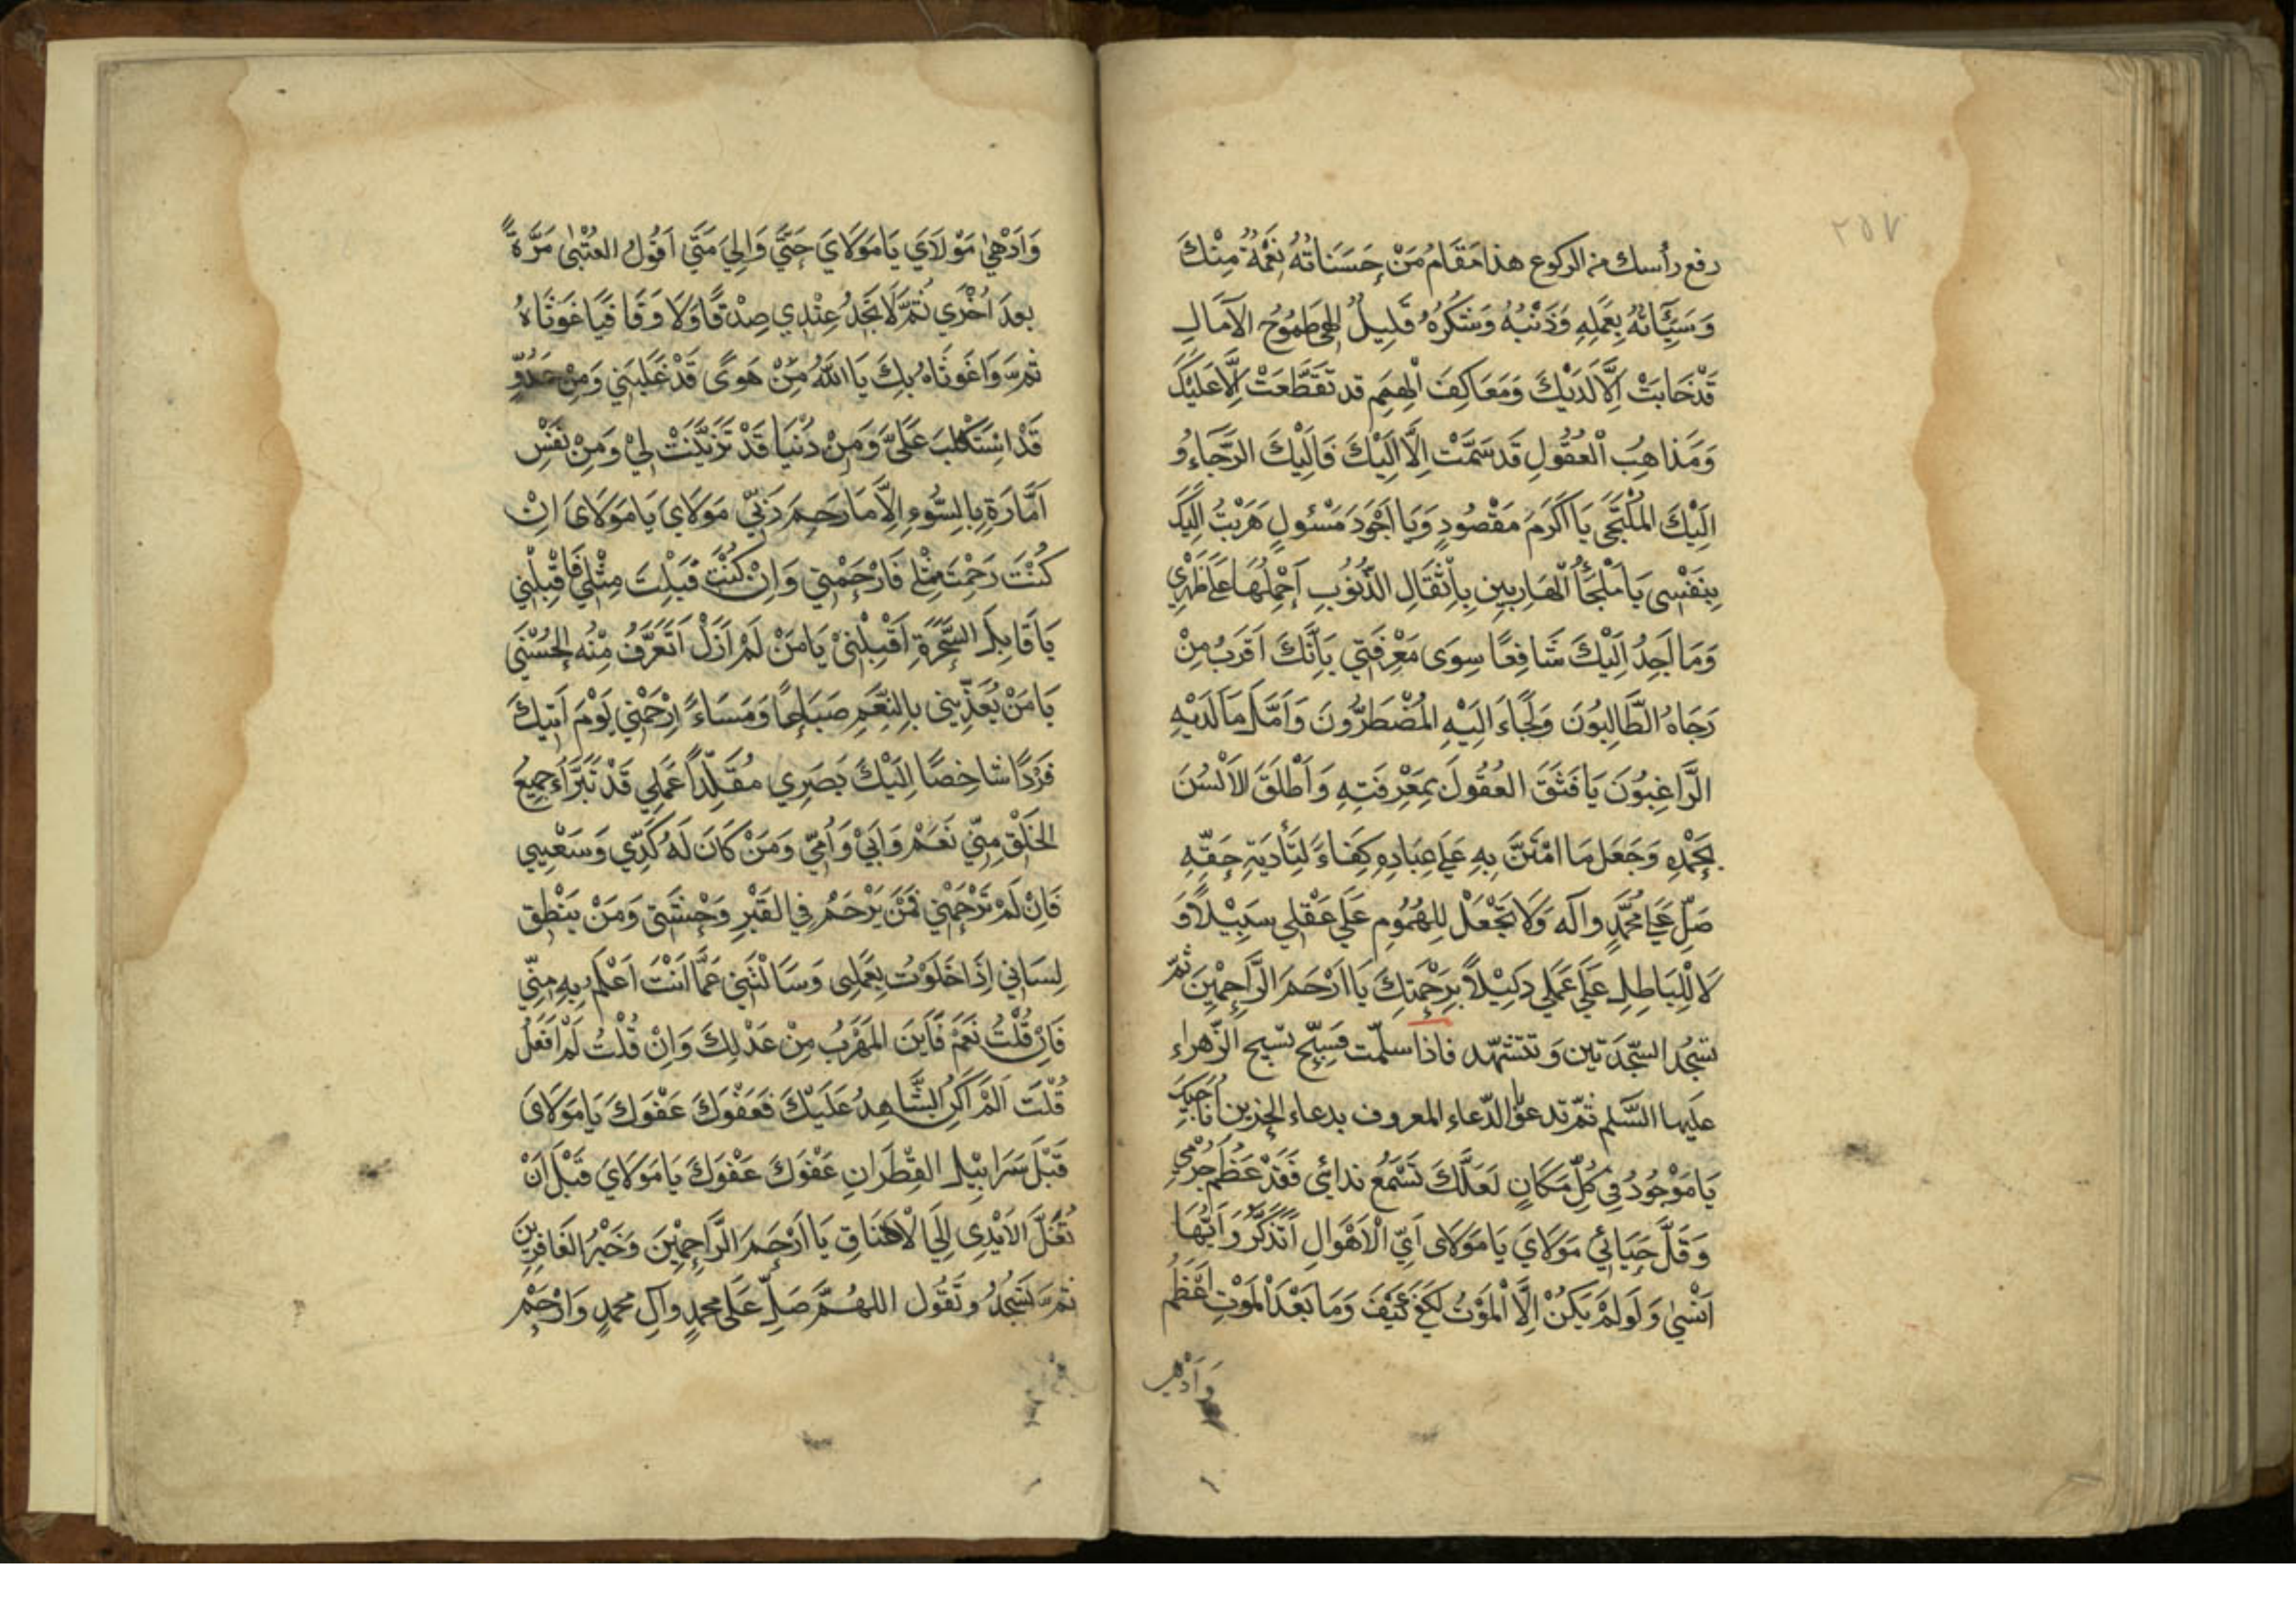 ٢٥٧
رفع رأسك من الركوع هذا مَقَامُ مَنْ حَسَنَاتُهُ نِعْمَةٌ مِنْكَ
وَسَيِّئَاتُهُ بِعَمَلِهِ وَذَنْبُهُ وَشُكْرُهُ قَلِيلٌ إِلٰهِي طُمُوحُ الآمَالِ
قَدْ خَابَتْ إِلَّا لَدَيْكَ وَمَعَاكِفَ الْهِمَمِ قد تَقَطَّعَتْ إِلَّا عَلَيْكَ
وَمَذَاهِبُ الْعُقُولِ قَد سَمَتْ اِلَّا اِلَيْكَ فَاِلَيْكَ الرَّجَاءُ وَ
اِلَيْكَ المُلْتَجَى يَا اَكْرَمَ مَقْصُودٍ وَيَا اَجْوَدَ مَسْئولٍ هَرَبْتُ اِلَيْكَ
بِنَفْسِى يَا مَلْجَأَ الْهَارِبِينِ بِأَثْقَالِ الذُّنُوبِ اَحْمِلُهَا عَلَى ظَهْرِي
وَمَا اَجِدُ اِلَيْكَ شَافِعًا سِوَى مَعْرِفَتِي بِاَنَّكَ اَقْرَبُ مِنْ
رَجَاهُ الطَّالِبُونَ وَلَجَاءَ اِلَيْهِ المُضْطَرُّونَ وَاَمَّلَ مَا لَدَيْهِ
الرَّاغِبُونَ يَا فَتَقَ العُقُولَ بِمَعْرِفَتِهِ وَاَطْلَقَ الاَلْسُنَ
بِحَمْدِهِ وَجَعَلَ مَا امْتَنَّ بِهِ عَلَى عِبَادِهِ كِفَاءً لِتَأْدِيَةِ حَقِّهِ
صَلِّ عَلَى مُحَمَّدٍ وآله وَلَا تَجْعَلْ لِلهُمُومِ عَلَى عَقْلِي سَبِيْلًا وَ
لَا لِلْبَاطِلِ عَلَى عَمَلِي دَلِيْلًا بِرَحْمَتِكَ يَا اَرْحَمَ الرَّاحِمِيْنَ ثمّ
تسجُد السّجْدَتين وَتتشهّد فاذا سلّمت فَسبّح تسبيح الزّهراء
عليها السَّلم ثمّ تدعو الدّعاء المعروف بدعاء الحزين اُنَاجِيكَ
يَا مَوْجُودُ فِي كُلِّ مَكَانٍ لَعَلَّكَ تَسْمَعُ نِدائي فَقَدْ عَظُمَ جُرْمِي
وَقَلَّ حَيَائِي مَوْلَايَ يَا مَوْلَاىَ اَيَّ الْاَهْوَالِ اَتَذَكَّرُ وَاَيَّهَا
اَنْسٰى وَلَو لَمْ يَكُنْ اِلَّا الْمَوْتُ لَكَفَى كَيْفَ وَمَا بَعْدَ الْمَوْتِ اَعْظَمُ
وَاَدْهى
وَاَدْهٰى مَوْلَايَ يَا مَوْلَايَ حَتَّى وَاِلَى مَتَى اَقُولُ العُتْبٰى مَرَّةً
بعدَ اُخْرَى ثُمَّ لَا تَجِدُ عِنْدِي صِدْقًا وَلَا وَفَا فَيَا غَوْثَاهُ
ثمّ وَاغَوْثَاهُ بِكَ يَا اللهُ مِنْ هَوًى قَدْ غَلَبَنِي وَمِنْ عَدُوٍّ
قَدْ اسْتَكْلَبَ عَلَيَّ وَمِنْ دُنْيَا قَدْ تَزَيَّنَتْ لِي وَمِنْ نَفْسٍ
اَمَّارَةٍ بِالسُّوءِ اِلَّا مَا رَحِمَ رَبِّي مَوْلَايَ يَا مَوْلَاىَ اِنْ
كُنْتَ رَحِمْتَ مِثْلِي فَارْحَمْنِي وَاِنْ كُنْتَ قَبِلْتَ مِثْلِي فَاقْبِلْنِي
يَا قَابِلَ السَّحَرَةِ اَقْبِلْنِي يَا مَنْ لَمْ اَزَلْ اَتَعَرَّفُ مِنْهُ الحُسْنٰى
يَا مَنْ يُغَذِّينِي بِالنِّعَمِ صَبَاحًا وَمَسَاءً اِرْحَمْنِي يَوْمَ اَتِيكَ
فَرْدًا شَاخِصًا اِلَيْكَ بَصَرِي مُقَلِّداً عَمَلِي قَدْ تَبَرَّاَءَ جَمِيعُ
الخَلْقِ مِنِّي نَعَمْ وَاَبِي وَاُمِّي وَمَنْ كَانَ لَهُ كَدِّي وَسَعْيِي
فَاِنْ لَمْ تَرْحَمْنِي فَمَنْ يَرْحَمُ فِي القَبْرِ وَحْشَتِي وَمَنْ يَنْطِق
لِسَانِي اِذَا خَلَوْتُ بِعَمَلِى وَسَاَلْتَنِي عَمَّا اَنْتَ اَعْلَمُ بِهِ مِنِّي
فَاِنْ قُلْتُ نَعَمْ فَاَيْنَ المَهْرَبُ مِنْ عَدْلِكَ وَاِنْ قُلْتُ لَمْ اَفْعَلْ
قُلْتَ اَلَمْ اَكُنِ الشَّاهِدُ عَلَيْكَ فَعَفْوَكَ عَفْوَكَ يَا مَوْلَاىَ
قَبْلَ سَرَابِيْلِ القِطْرَانِ عَفْوَكَ عَفْوَكَ يَا مَوْلَايَ قَبْلَ اَنْ
تُغَلَّ الاَيْدِى اِلَى الْاَعْنَاقِ يَا اَرْحَمَ الرَّاحِمِيْنَ وَخَيْرُ الغَافِرِينَ
ثمّ تَسْجُدُ وتَقُول اللهُمَّ صَلِّ عَلَى محمدٍ وآلِ محمدٍ وَارْحَمْ